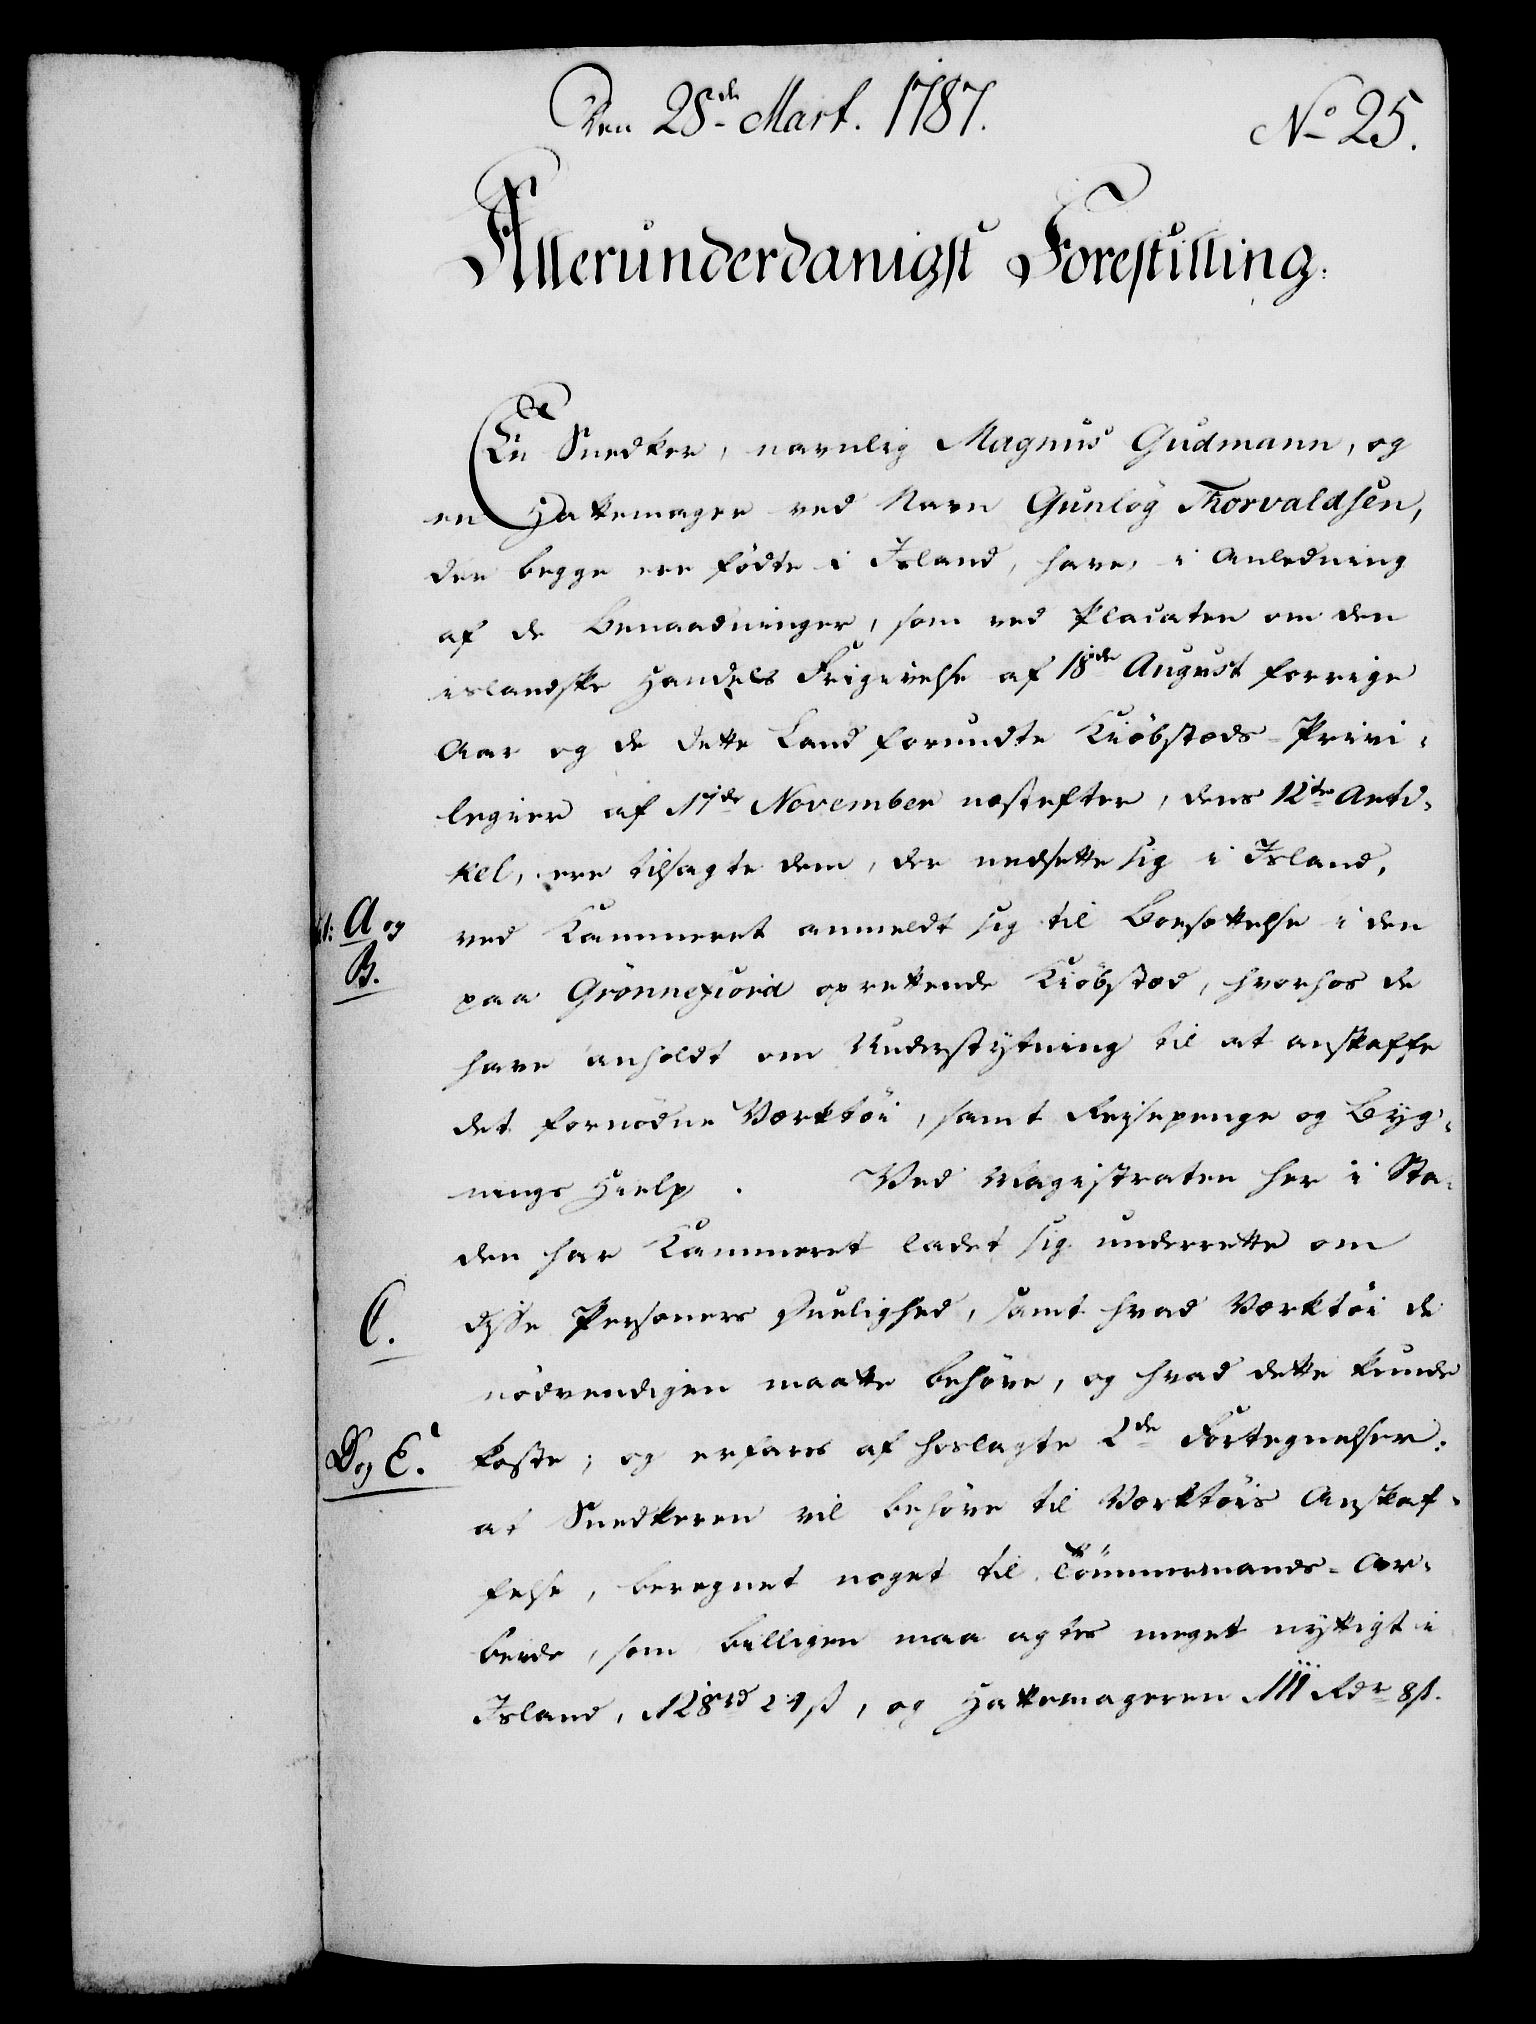 Den 28de Mart. 1787.
No 25.
Allerunderdanigst Forestilling.
En Snedker, navnlig Magnus Gudmann, og
en Hattemager ved Navn Gunløg Thorvaldsen,
der begge ere fødte i Island, have, i Anledning
af de Benaadninger, som ved Placaten om den
islandske Handels Frigivelse af 18de August forrige
Aar og de dette Land forundte Kiøbstæds-Privi-
legier af 17de November næstefter, dens 12te Arti-
kel, ere tilsagte dem, der nedsætte sig i Island,
Lit: A og
B.
ved Kammeret anmeldt sig til Bosættelse i den
paa Grønnefiord oprettende Kiøbstæd, hvorhos de
have anholdt om Understøtning til at anskaffe
det fornødne Værktøi, samt Reisepenge og Byg-
nings Hielp. Ved Magistraten her i Sta-
den har Kammeret ladet sig underrette om
C.
disse Personers Duelighed, samt hvad Værktøi de
nødvendigen maatte behøve, og hvad dette kunde
D og E.
koste; og erfares af hoslagte 2de Fortegnelser:
at Snedkeren vil behøve til Værktøis Anskaf-
felse, beregnet noget til Tømmermands-Ar-
beide, som billigen maa agtes meget nyttigt i
Island, 128rd 24ß, og Hattemageren 111 Rdr 8ß.